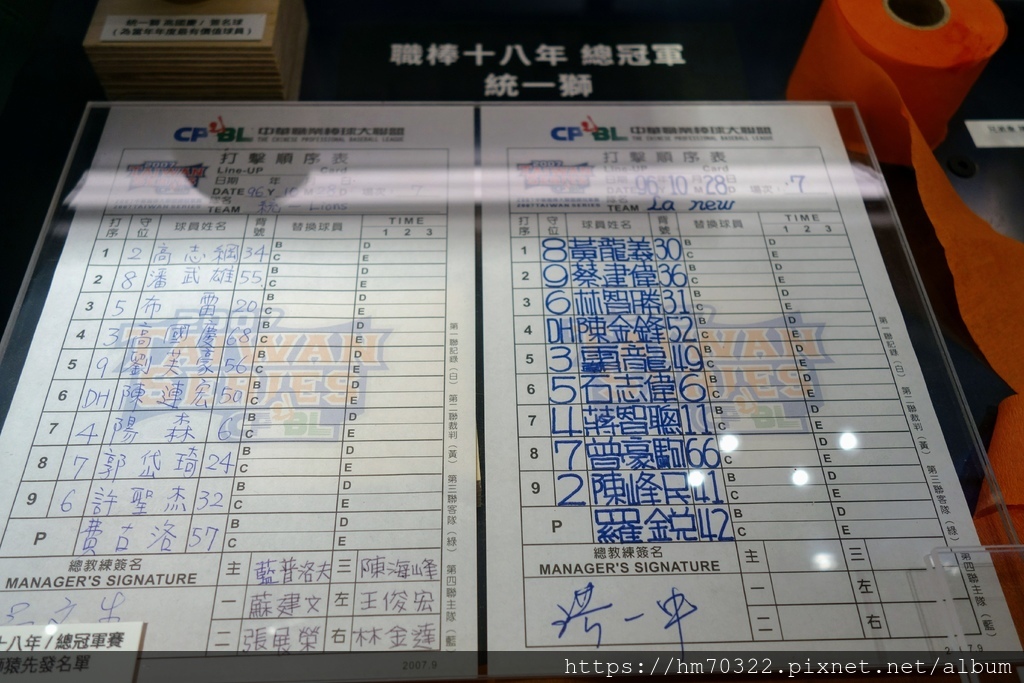 統一獅 高國慶 / 簽名球
(為當年年度最有價值球員)
職棒十八年 總冠軍
統一獅
CPBL 中華職業棒球大聯盟
THE CHINESE PROFESSIONAL BASEBALL LEAGUE
打擊順序表
Line-UP Card
2007
日期 年
DATE 96 Y 10 M 28 D 場次: 7
隊名
TEAM 統一 Lions
打序 守位 球員姓名 背號 替換球員 TIME
1 2 3
1 2 高志綱 34 B C D E
2 8 潘武雄 55 B C D E
3 5 布雷 20 B C D E
4 3 高國慶 68 B C D E
5 9 劉芙豪 56 B C D E
6 DH 陳連宏 50 B C D E
7 4 陽森 6 B C D E
8 7 郭岱琦 24 B C D E
9 6 許聖杰 32 B C D E
P 費古洛 57 B C D E
TAIWAN SERIES
CPBL
總教練簽名
MANAGER'S SIGNATURE
主 藍普洛夫 三 陳海峰
一 蘇建文 左 王俊宏
二 張展榮 右 林金達
第一聯記錄(白) 第二聯裁判(黃) 第三聯客隊(綠) 第四聯主隊(藍)
2007.9
CPBL 中華職業棒球大聯盟
THE CHINESE PROFESSIONAL BASEBALL LEAGUE
打擊順序表
Line-UP Card
2007
日期
DATE 96.10.28 日 場次: 7
隊名
TEAM La new
打序 守位 球員姓名 背號 替換球員 TIME
1 2 3
1 8 黃龍義 30 B C D E
2 9 蔡建偉 36 B C D E
3 6 林智勝 31 B C D E
4 DH 陳金鋒 52 B C D E
5 3 龍 49 B C D E
6 5 石志偉 6 B C D E
7 4 蔣智聰 11 B C D E
8 7 曾豪駒 66 B C D E
9 2 陳峰民 41 B C D E
P 羅銳 42 B C D E
TAIWAN SERIES
CPBL
總教練簽名
MANAGER'S SIGNATURE
主 三
一 左
二 右
第一聯記錄(白) 第二聯裁判(黃) 第三聯客隊(綠) 第四聯主隊(藍)
十八年 / 總冠軍賽
猿先發名單
https://hm70322.pixnet.net/album